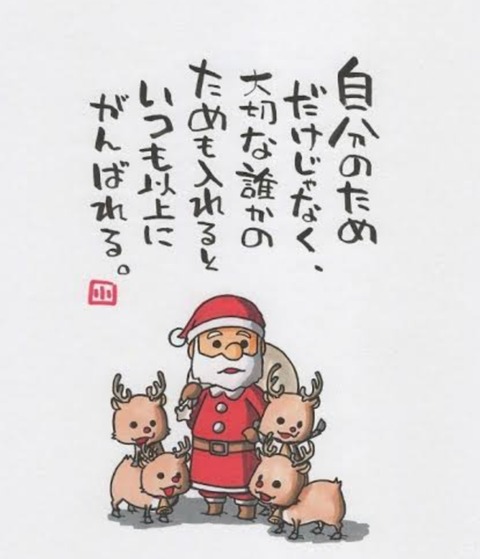 自分のため
だけじゃなく、
大切な誰かの
ためも入れると
いつも以上に
がんばれる。
小